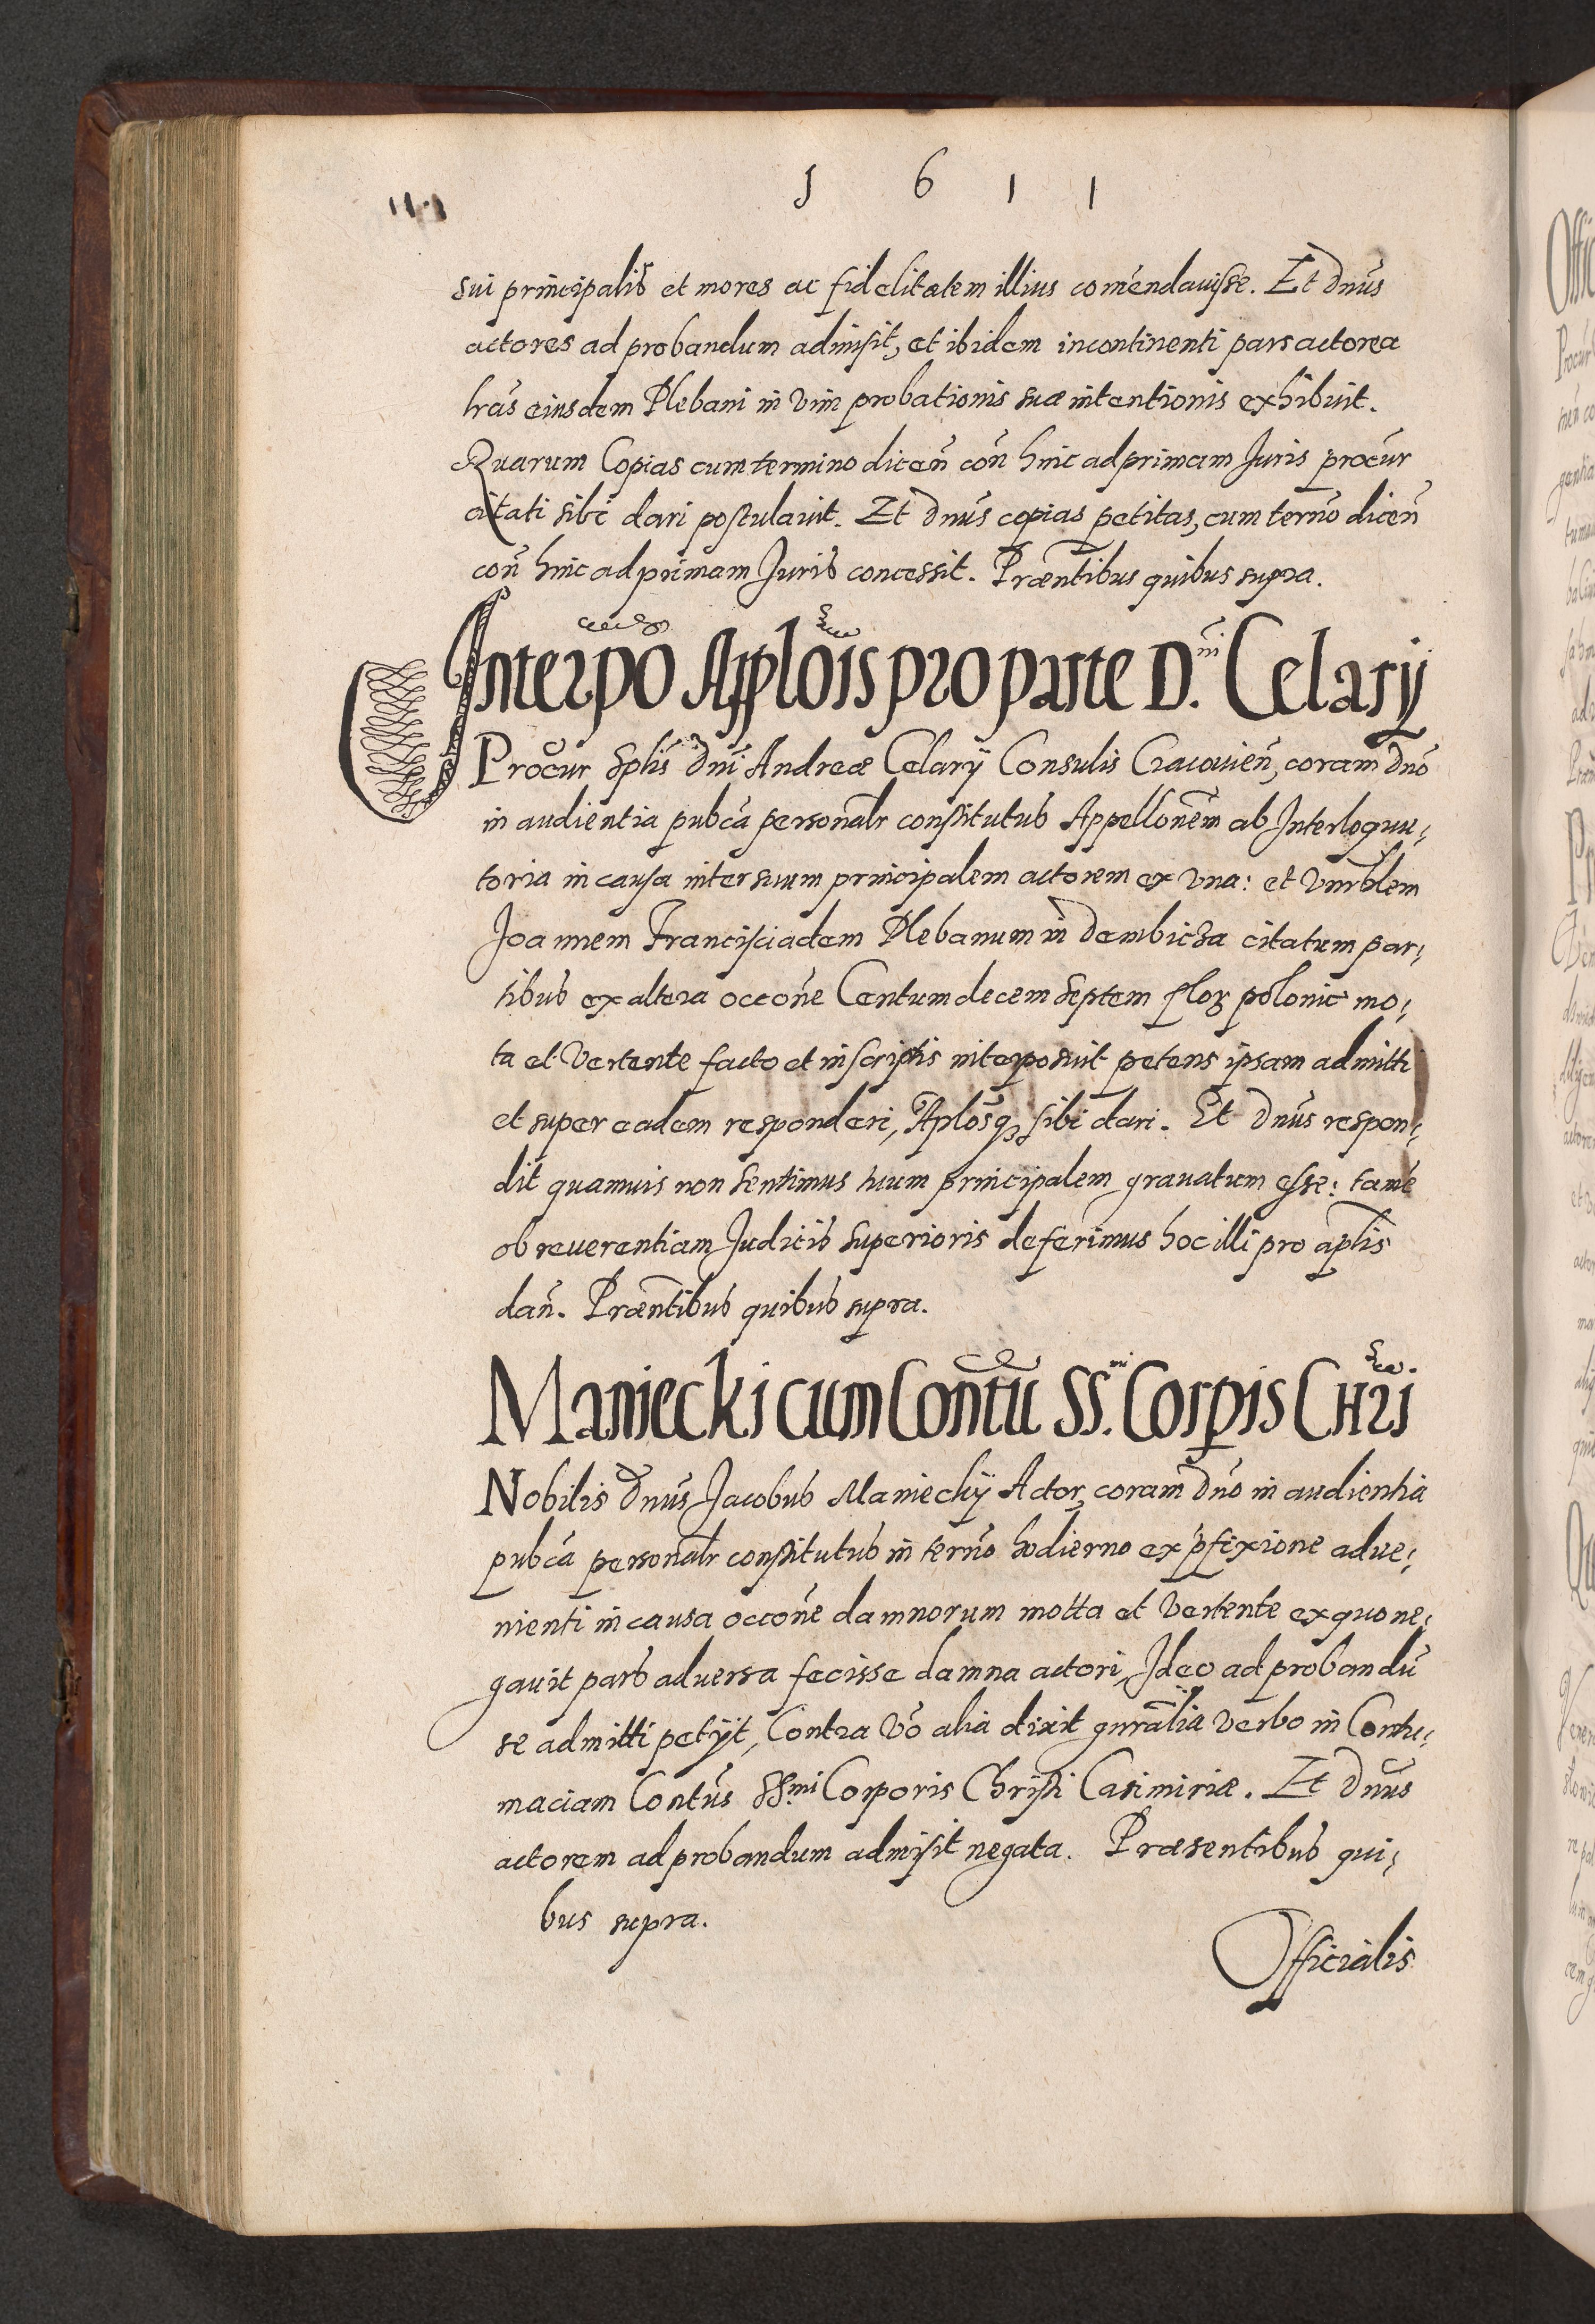 1 6 1 1
sui principalis et mores ac fidelitatem illius com̄endauisse. Et Dn̄us
actores ad probandum admisit, et ibidem incontinenti pars actorea
lrās eiusdem Plebani in vim probationis suæ intentionis exhibuit.
Quarum Copias cum termino dicen̄ con̄ hinc ad primam Juris procūr
citati sibi dari postulauit. Et Dn̄us copias petitas, cum tern̄o dicen̄
con̄ hinc ad primam Juris concessit. Præn̄tibus quibus supra.
Interpō Applōis pro parte D.ni Celarij
Procūr Splis Dn̄i Andreæ Celarij Consulis Cracouien̄, coram Dn̄o
in audientia pubca personalr constitutus Appellonēm ab Interloquu¸
toria in causa inter suum principalem actorem ex vna: et Vnrāblem
Joannem Francisciadem Plebanum in Dembicza citatum par¸
tibus ex altera occōne Centum decem septem flor polonic mo¸
ta et vertente facto et in scriptis interposuit petens ipsam admitti
et super eadem responderi, Aplōsq3 sibi dari. Et Dn̄us respon¸
dit quamuis non sentimus tuum principalem grauatum esse: tamē
ob reuerentiam Judicis superioris deferimus hoc illi pro aplis
dan̄. Præn̄tibus quibus supra.
Maniecki cum Contū SS.mi Corpis Chri
Nobilis Dn̄us Jacobus Maniecky Actor, coram Dn̄o in audientia
pubca personalr constitutus in tern̄o hodierno ex p̄fixione adue¸
nienti in causa occōne damnorum motta et vertente ex quo ne¸
gauit pars aduersa fecisse damna actori, Ideo ad probandū
se admitti petijt, Contra vō alia dixit gnrālia verbo in Contu¸
maciam Contūs SS.mi Corporis Christi Casimiriæ. Et Dn̄us
actorem ad probandum admisit negata. Præsentibus qui¸
bus supra.
Officialis